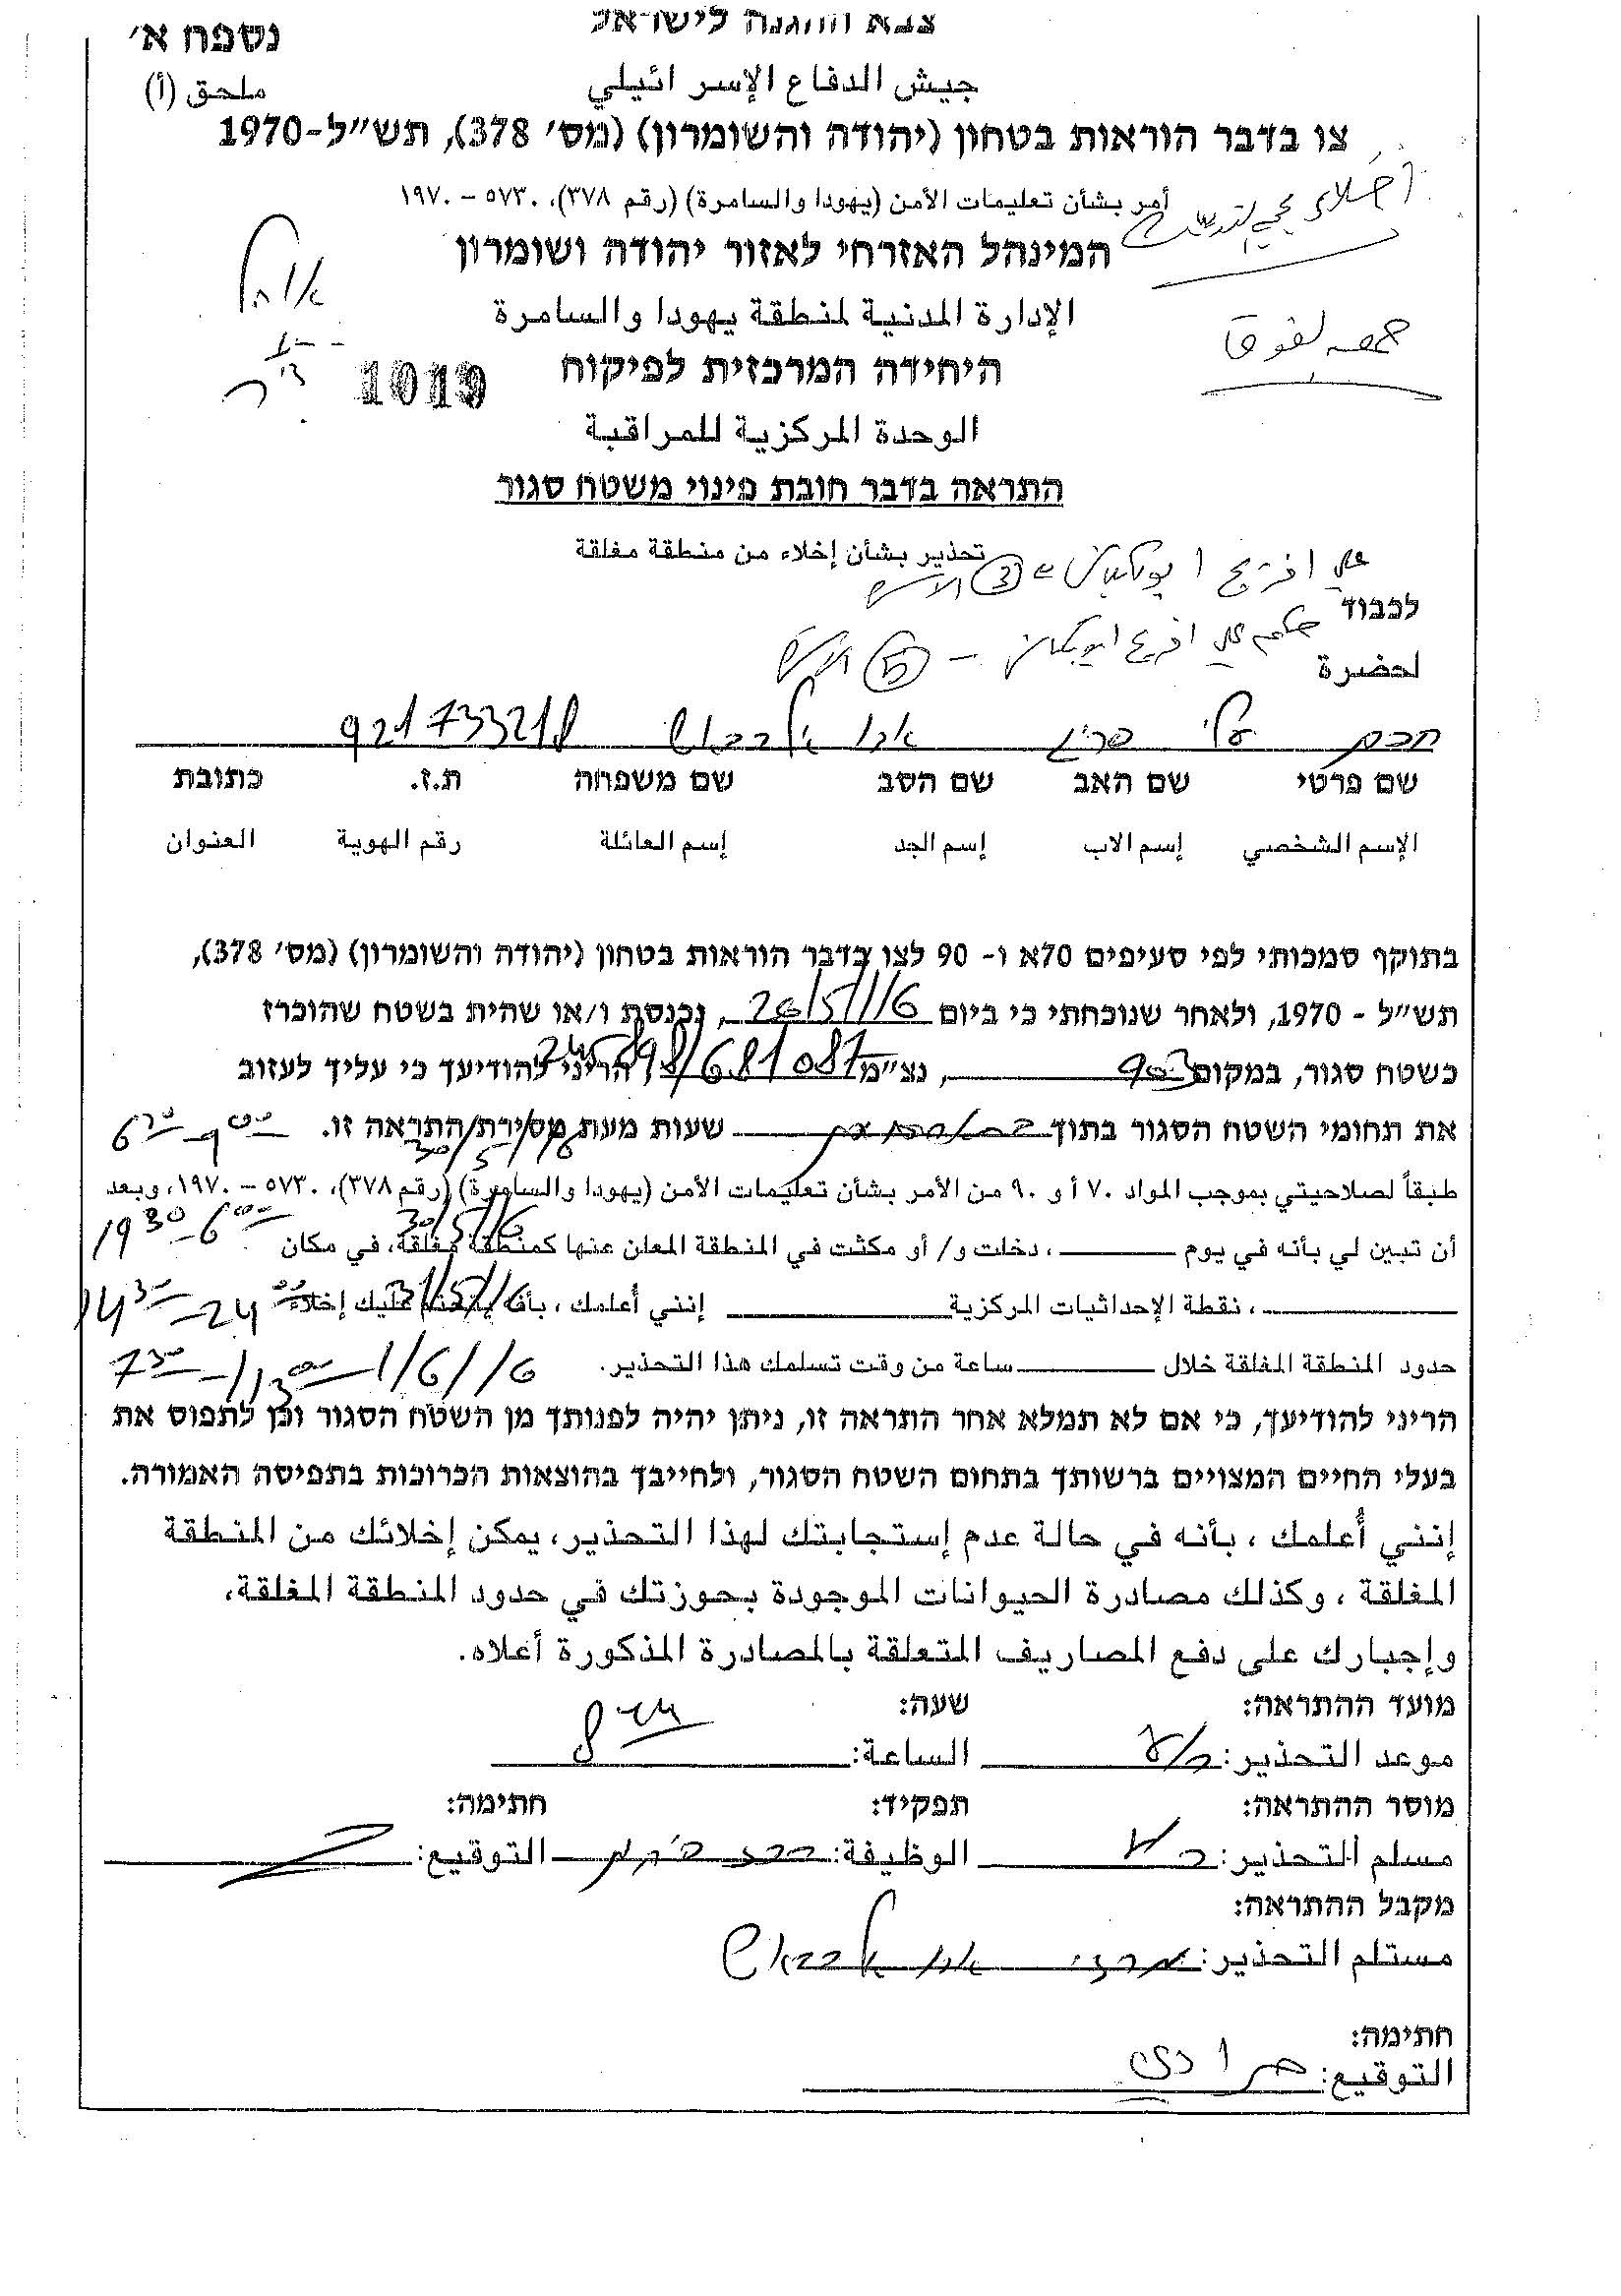 צבא ההגנה לישראל
נספח א׳
جيش الدفاع الإسرائيلي
ملحق (أ)
צו בדבר הוראות בטחון (יהודה והשומרון) (מס׳ 378), תש״ל-1970
أمر بشأن تعليمات الأمن (يهودا والسامرة) (رقم ٣٧٨)، ٥٧٣٠ – ١٩٧٠
המינהל האזרחי לאזור יהודה ושומרון
الإدارة المدنية لمنطقة يهودا والسامرة
היחידה המרכזית לפיקוח
1019
الوحدة المركزية للمراقبة
התראה בדבר חובת פינוי משטח סגור
تحذير بشأن إخلاء من منطقة مغلقة
לכבוד
لحضرة
חכם עלי 921733218
שם פרטי שם האב שם הסב שם משפחה ת.ז. כתובת
الإسم الشخصي إسم الاب إسم الجد إسم العائلة رقم الهوية العنوان
בתוקף סמכותי לפי סעיפים 70א ו- 90 לצו בדבר הוראות בטחון (יהודה והשומרון) (מס׳ 378),
תש״ל - 1970, ולאחר שנוכחתי כי ביום 26/5/16, נכנסת ו/או שהית בשטח שהוכרז
כשטח סגור, במקום 903, נצ״מ 681081 הריני להודיעך כי עליך לעזוב
את תחומי השטח הסגור בתוך שעות מעת מסירת התראה זו.
30/5/16
طبقاً لصلاحيتي بموجب المواد ٧٠ أ و ٩٠ من الأمر بشأن تعليمات الأمن (يهودا والسامرة) (رقم ٣٧٨)، ٥٧٣٠ – ١٩٧٠، وبعد
أن تبين لي بأنه في يوم ، دخلت و/ أو مكثت في المنطقة المعلن عنها كمنطقة مغلقة، في مكان
30/5/16 19³⁰-6⁰⁰
، نقطة الإحداثيات المركزية إنني أعلمك ، بأنه يتحتم عليك إخلاء
31/5/16
حدود المنطقة المغلقة خلال ساعة من وقت تسلمك هذا التحذير.
1/6/16
הריני להודיעך, כי אם לא תמלא אחר התראה זו, ניתן יהיה לפנותך מן השטח הסגור וכן לתפוס את
בעלי החיים המצויים ברשותך בתחום השטח הסגור, ולחייבך בהוצאות הכרוכות בתפיסה האמורה.
إنني أعلمك ، بأنه في حالة عدم إستجابتك لهذا التحذير، يمكن إخلائك من المنطقة
المغلقة ، وكذلك مصادرة الحيوانات الموجودة بحوزتك في حدود المنطقة المغلقة،
وإجبارك على دفع المصاريف المتعلقة بالمصادرة المذكورة أعلاه.
מועד ההתראה: שעה:
موعد التحذير: الساعة:
מוסר ההתראה: תפקיד: חתימה:
مسلم التحذير: الوظيفة: التوقيع:
מקבל ההתראה:
مستلم التحذير:
חתימה:
التوقيع: